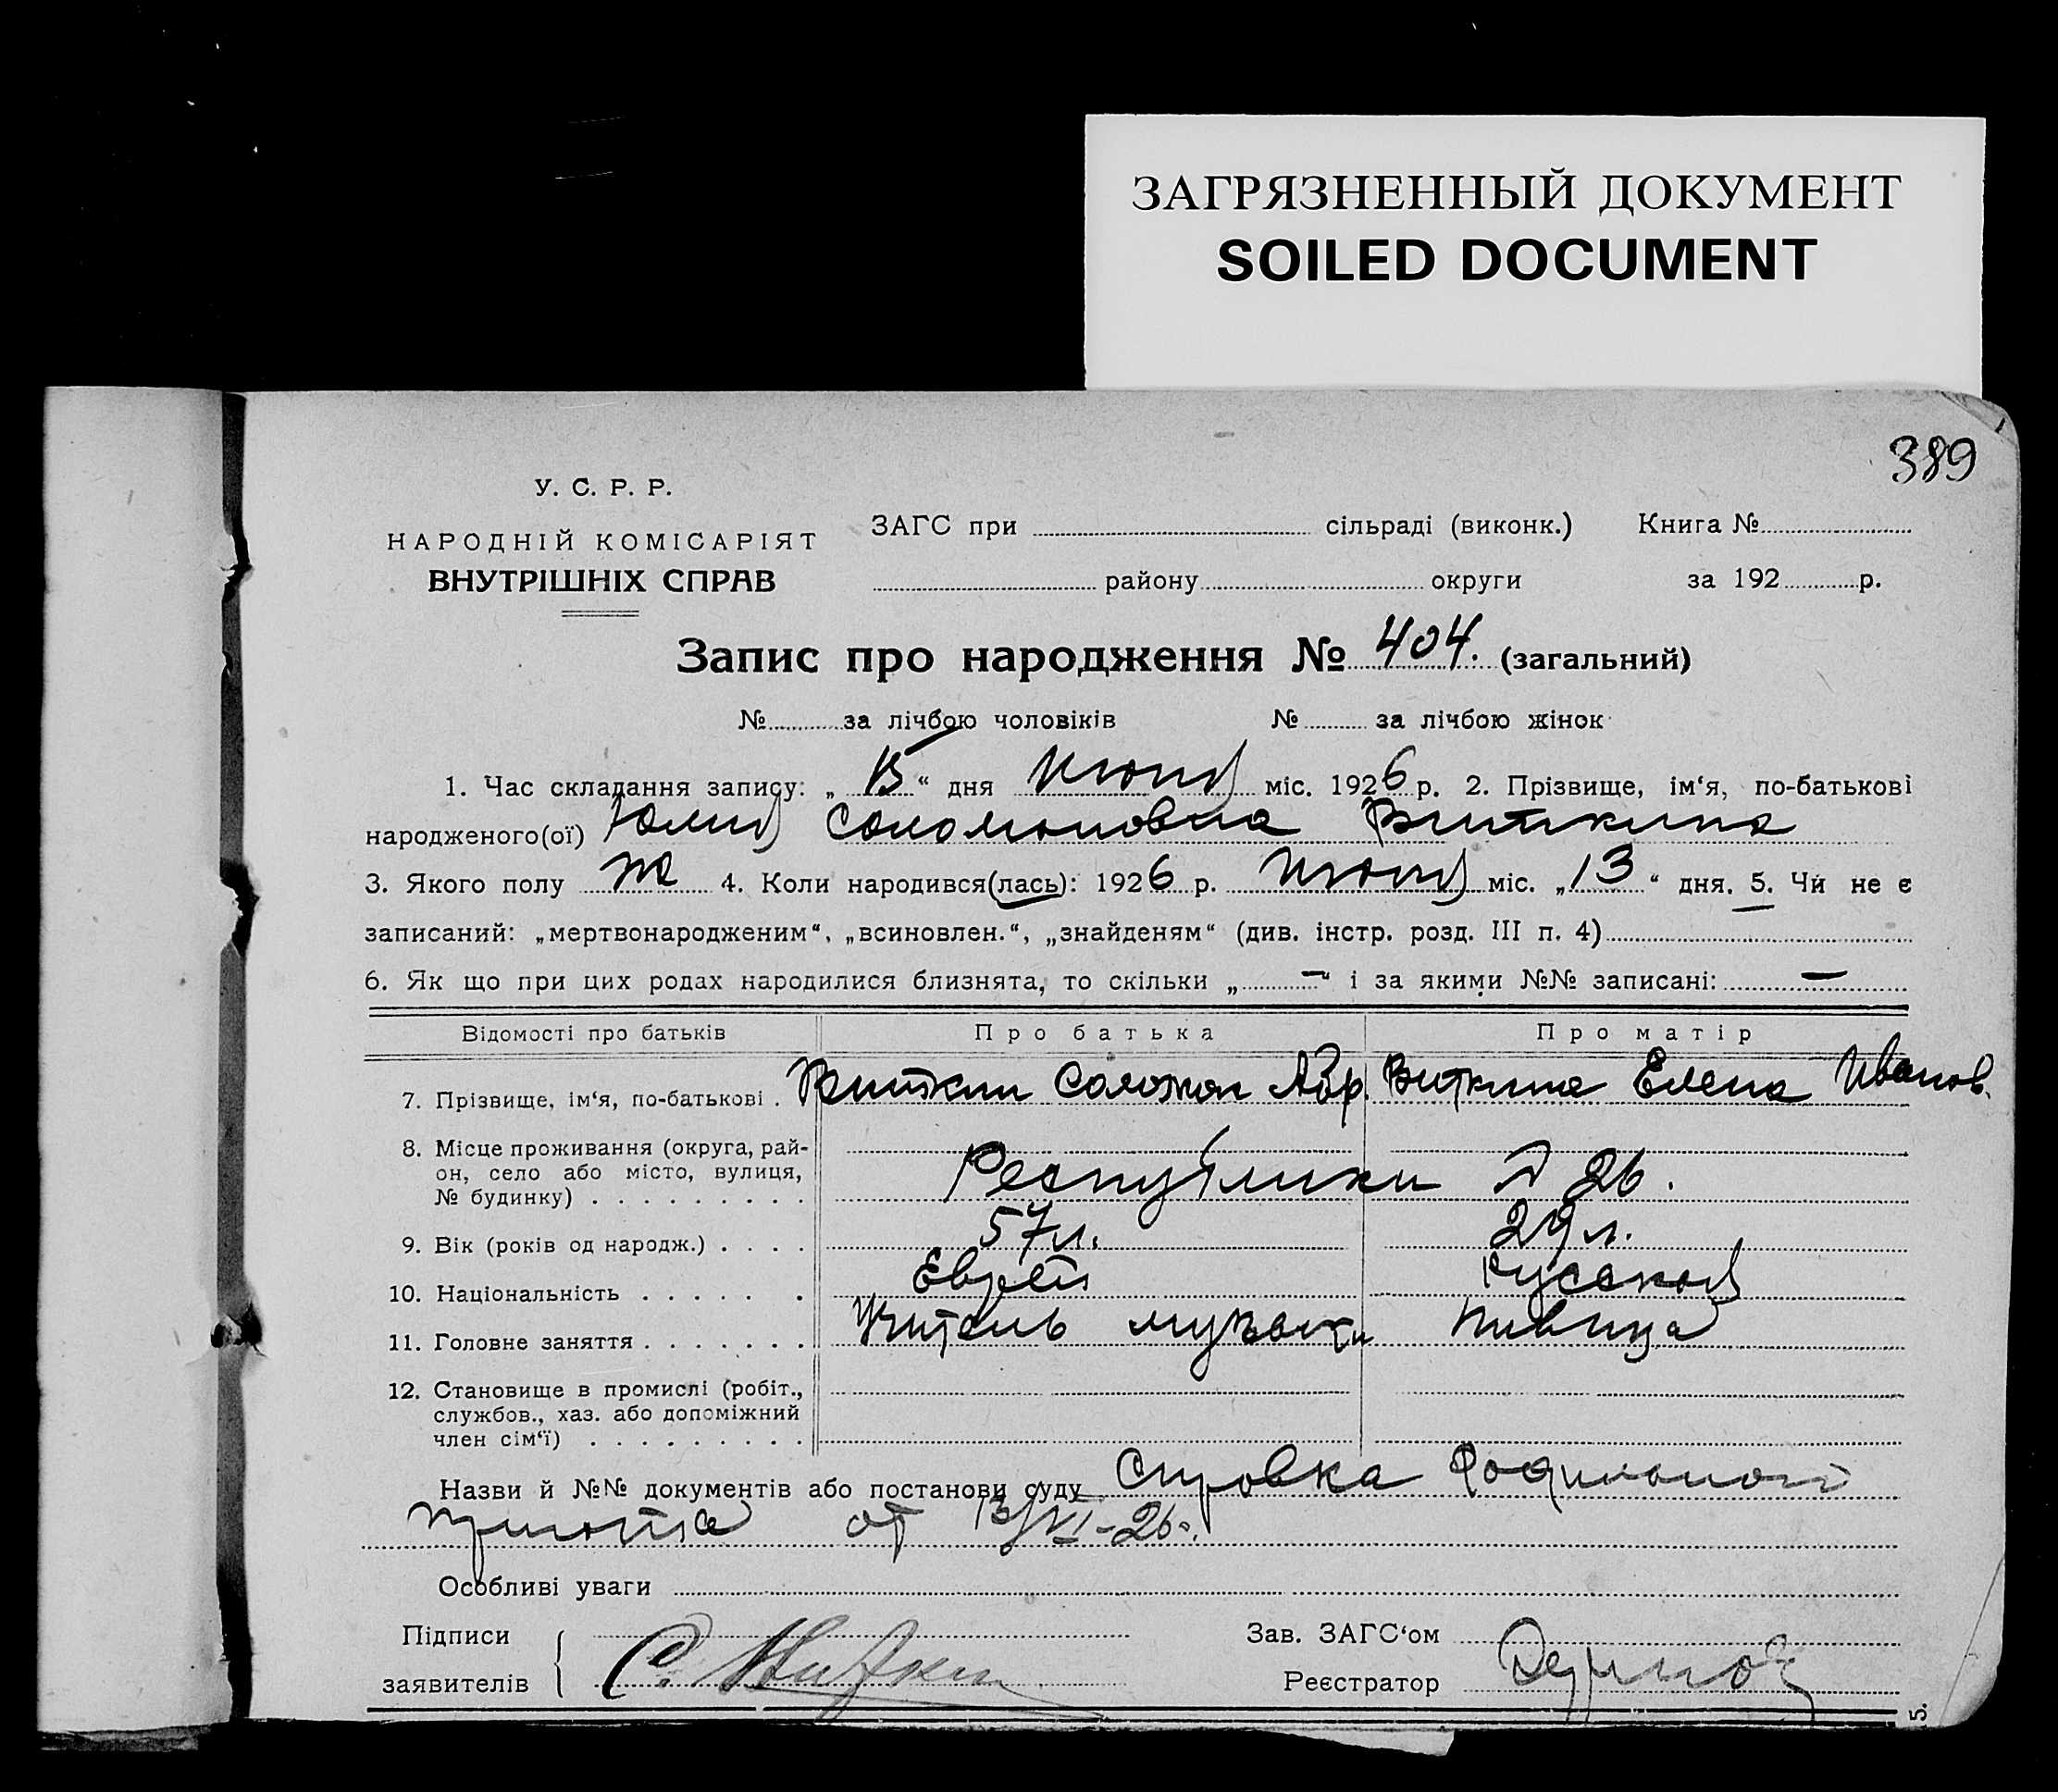 ЗАГРЯЗНЕННЫЙ ДОКУМЕНТ
SOILED DOCUMENT
389
У. С. Р. Р.
НАРОДНІЙ КОМІСАРІЯТ
ВНУТРІШНІХ СПРАВ
ЗАГС при сільраді (виконк.) Книга №
району округи за 192 р.
Запис про народження № 404. (загальний)
№ за лічбою чоловіків № за лічбою жінок
1. Час складання запису: „15“ дня Июня міс. 1926 р. 2. Прізвище, ім‘я, по-батькові
народженого(ої) Юлия Соломоновна Виткина
3. Якого полу ж 4. Коли народився(лась): 1926 р. Июня міс. „13“ дня. 5. Чи не є
записаний: „мертвонародженим“, „всиновлен.“, „знайденям“ (див. інстр. розд. III п. 4)
6. Як що при цих родах народилися близнята, то скільки „—“ і за якими №№ записані: —
Відомості про батьків Про батька Про матір
7. Прізвище, ім‘я, по-батькові . Виткин Соломон Абр. Виткина Елена Иванов.
8. Місце проживання (округа, рай-
он, село або місто, вулиця,
№ будинку) . . . . . . . . . Республики д 26.
9. Вік (років од народж.) . . . . 57 л. 29 л.
10. Національність . . . . . . Еврей Русская
11. Головне заняття . . . . . . . Учитель музыки Певица
12. Становище в промислі (робіт.,
службов., хаз. або допоміжний
член сім‘ї) . . . . . . . . .
Назви й №№ документів або постанови суду Справка Родильного
приюта от 13/VI-26г.
Особливі уваги
Підписи
заявителів С. Виткин
Зав. ЗАГС‘ом
Реєстратор
5.